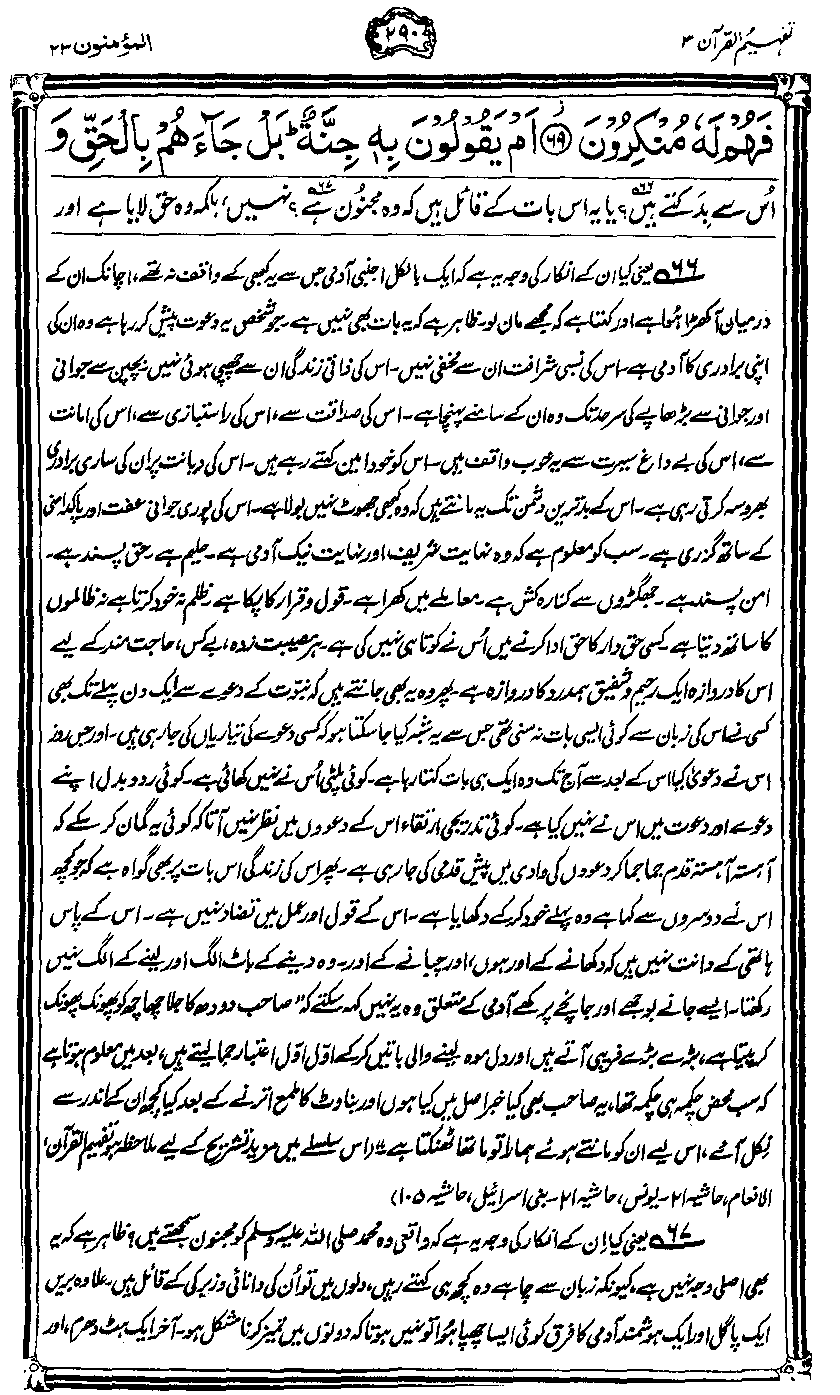 تفہیم القرآن ۳
۲۹۰
المؤمنون ۲۳
فَهُمْ لَهٗ مُنْكِرُوْنَ ﴿۶۹﴾ اَمْ يَقُوْلُوْنَ بِهٖ جِنَّةٌ ؕ بَلْ جَآءَهُمْ بِالْحَقِّ وَ
اُس سے بِدَکتے ہیں؟۶۶ یا یہ اس بات کے قائل ہیں کہ وہ مجنُون ہے؟۶۷ نہیں، بلکہ وہ حق لایا ہے اور
۶۶ یعنی کیا ان کے انکار کی وجہ یہ ہے کہ ایک بالکل اجنبی آدمی جس سے یہ کبھی کے واقف نہ تھے، اچانک ان کے
درمیان آ کھڑا ہُوا ہے اور کہتا ہے کہ مجھے مان لو۔ ظاہر ہے کہ یہ بات بھی نہیں ہے۔ جو شخص یہ دعوت پیش کر رہا ہے وہ ان کی
اپنی برادری کا آدمی ہے۔ اس کی نسبی شرافت ان سے مخفی نہیں۔ اس کی ذاتی زندگی ان سے چھپی ہوئی نہیں۔ بچپن سے جوانی
اور جوانی سے بڑھاپے کی سرحد تک وہ ان کے سامنے پہنچا ہے۔ اس کی صداقت سے، اس کی راستبازی سے، اس کی امانت
سے، اس کی بے داغ سیرت سے یہ خوب واقف ہیں۔ اس کو خود امین کہتے رہے ہیں۔ اس کی دیانت پر ان کی ساری برادری
بھروسہ کرتی رہی ہے۔ اس کے بدترین دشمن تک یہ مانتے ہیں کہ وہ کبھی جھوٹ نہیں بولا ہے۔ اس کی پوری جوانی عفت اور پاکدامنی
کے ساتھ گزری ہے۔ سب کو معلوم ہے کہ وہ نہایت شریف اور نہایت نیک آدمی ہے۔ حلیم ہے۔ حق پسند ہے۔
امن پسند ہے۔ جھگڑوں سے کنارہ کش ہے۔ معاملے میں کھرا ہے۔ قول و قرار کا پکا ہے۔ ظلم نہ خود کرتا ہے نہ ظالموں
کا ساتھ دیتا ہے۔ کسی حق دار کا حق ادا کرنے میں اُس نے کوتاہی نہیں کی ہے۔ ہر مصیبت زدہ، بے کس، حاجت مند کے لیے
اس کا دروازہ ایک رحیم و شفیق ہمدرد کا دروازہ ہے۔ پھر وہ یہ بھی جانتے ہیں کہ نبوت کے دعوے سے ایک دن پہلے تک بھی
کسی نے اس کی زبان سے کوئی ایسی بات نہ سنی تھی جس سے یہ شبہ کیا جا سکتا ہو کہ کسی دعوے کی تیاریاں کی جا رہی ہیں۔ اور جس روز
اس نے دعویٰ کیا اس کے بعد سے آج تک وہ ایک ہی بات کہتا رہا ہے۔ کوئی پلٹی اُس نے نہیں کھائی ہے۔ کوئی ردو بدل اپنے
دعوے اور دعوت میں اس نے نہیں کیا ہے۔ کوئی تدریجی ارتقاء اس کے دعووں میں نظر نہیں آتا کہ کوئی یہ گمان کر سکے کہ
آہستہ آہستہ قدم جما جما کر دعووں کی وادی میں پیش قدمی کی جا رہی ہے۔ پھر اس کی زندگی اس بات پر بھی گواہ ہے کہ جو کچھ
اس نے دوسروں سے کہا ہے وہ پہلے خود کر کے دکھایا ہے۔ اس کے قول اور عمل میں تضاد نہیں ہے۔ اس کے پاس
ہاتھی کے دانت نہیں ہیں کہ دکھانے کے اور ہوں، اور چبانے کے اور۔ وہ دینے کے باٹ الگ اور لینے کے الگ نہیں
رکھتا۔ ایسے جانے بوجھے اور جانچے پرکھے آدمی کے متعلق وہ یہ نہیں کہہ سکتے کہ "صاحب دودھ کا جلا چھاچھ کو پھونک پھونک
کر پیتا ہے، بڑے بڑے فریبی آتے ہیں اور دل موہ لینے والی باتیں کر کے اوّل اوّل اعتبار جما لیتے ہیں، بعد میں معلوم ہوتا ہے
کہ سب محض چکمہ ہی چکمہ تھا، یہ صاحب بھی کیا خبر اصل میں کیا ہوں اور بناوٹ کا ملمع اترنے کے بعد کیا کچھ ان کے اندر سے
نکل آئے، اس لیے ان کو مانتے ہوئے ہمارا تو ماتھا ٹھنکتا ہے"۔ (اس سلسلے میں مزید تشریح کے لیے ملاحظہ ہو تفہیم القرآن،
الانعام، حاشیہ ۲۱۔ یونس، حاشیہ ۲۱۔ بنی اسرائیل، حاشیہ ۱۰۵)
۶۷ یعنی کیا اِن کے انکار کی وجہ یہ ہے کہ واقعی وہ محمد صلی اللہ علیہ وسلم کو مجنون سمجھتے ہیں؟ ظاہر ہے کہ یہ
بھی اصلی وجہ نہیں ہے، کیونکہ زبان سے چاہے وہ کچھ ہی کہتے رہیں، دلوں میں تو اُن کی دانائی و زیرکی کے قائل ہیں۔ علاوہ بریں
ایک پاگل اور ایک ہوشمند آدمی کا فرق کوئی ایسا چھپا ہُوا تو نہیں ہوتا کہ دونوں میں تمیز کرنا مشکل ہو۔ آخر ایک ہٹ دھرم، اور